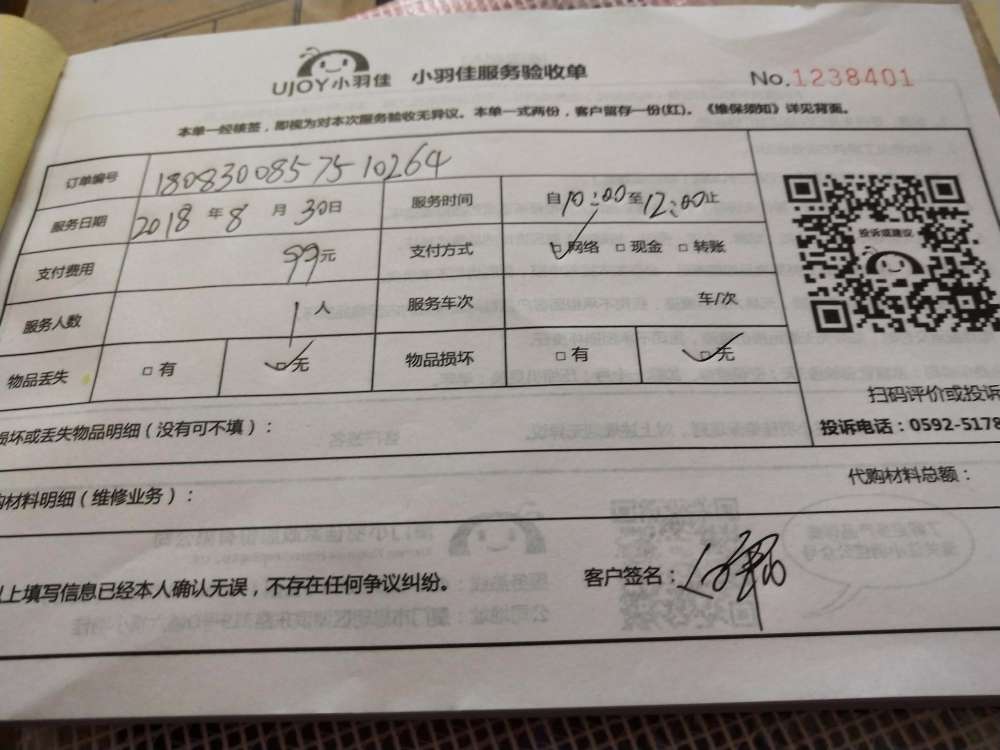 UJOY小羽佳 小羽佳服务验收单 No.1238401
本单一经核签，即视为对本次服务验收无异议。本单一式两份，客户留存一份(红)。《维保须知》详见背面。
订单编号 1808300857510264
服务日期 2018年8月30日 服务时间 自10:00至12:00止
投诉或建议
支付费用 99元 支付方式 网络 现金 转账
服务人数 1人 服务车次 车/次
物品丢失 有 无 物品损坏 有 无
扫码评价或投诉
投诉电话：0592-5178
损坏或丢失物品明细（没有可不填）：
购材料明细（维修业务）： 代购材料总额：
以上填写信息已经本人确认无误，不存在任何争议纠纷。 客户签名：